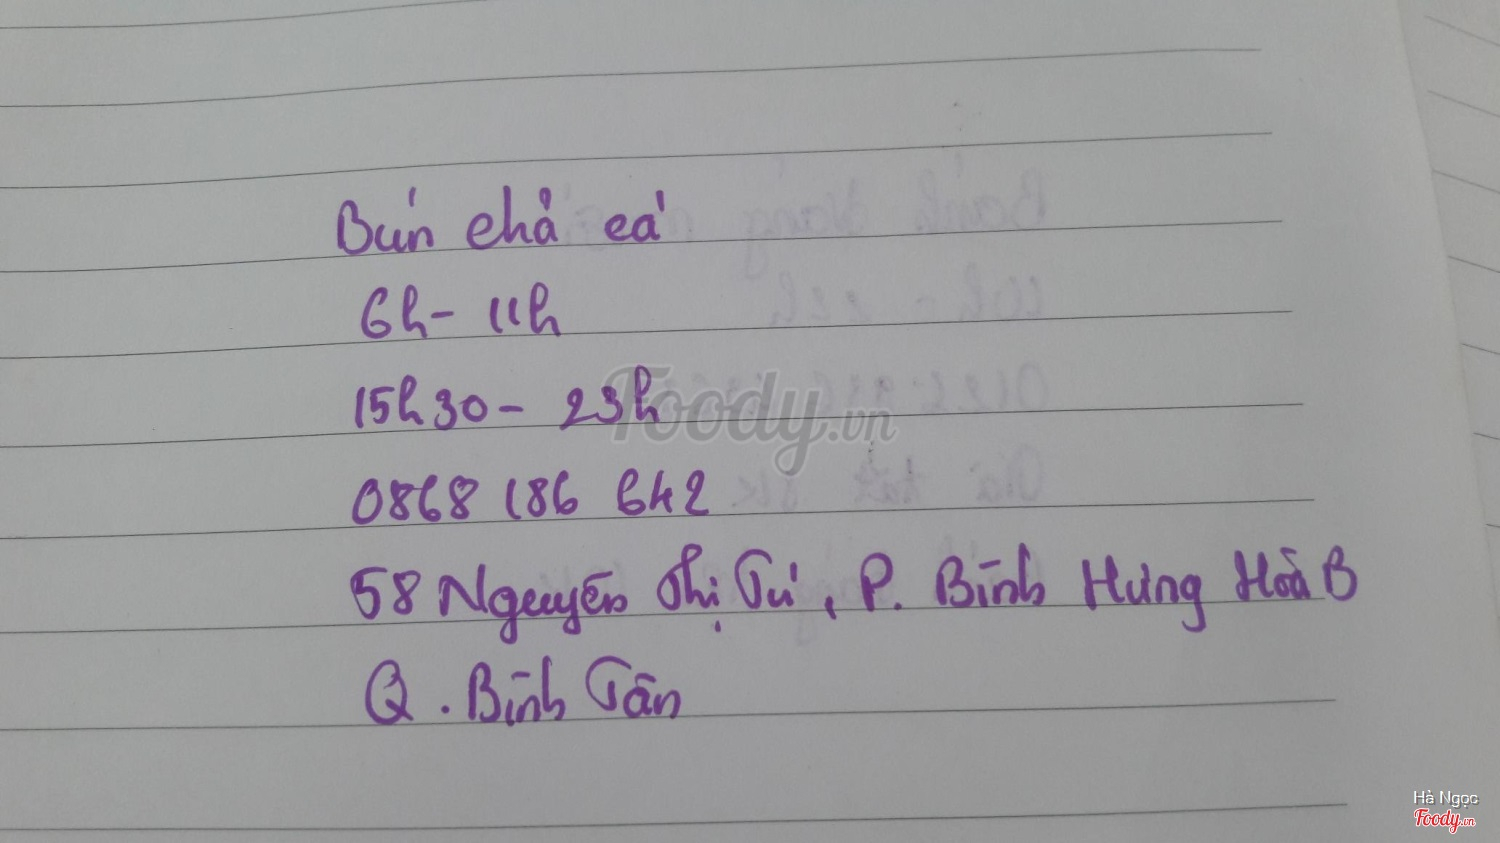 Bún chả cá
6h - 11h
15h30 - 23h
0868 186 642
58 Nguyễn Thị Tú, P. Bình Hưng Hoà B
Q. Bình Tân
Foody.vn
Hà Ngọc
Foody.vn